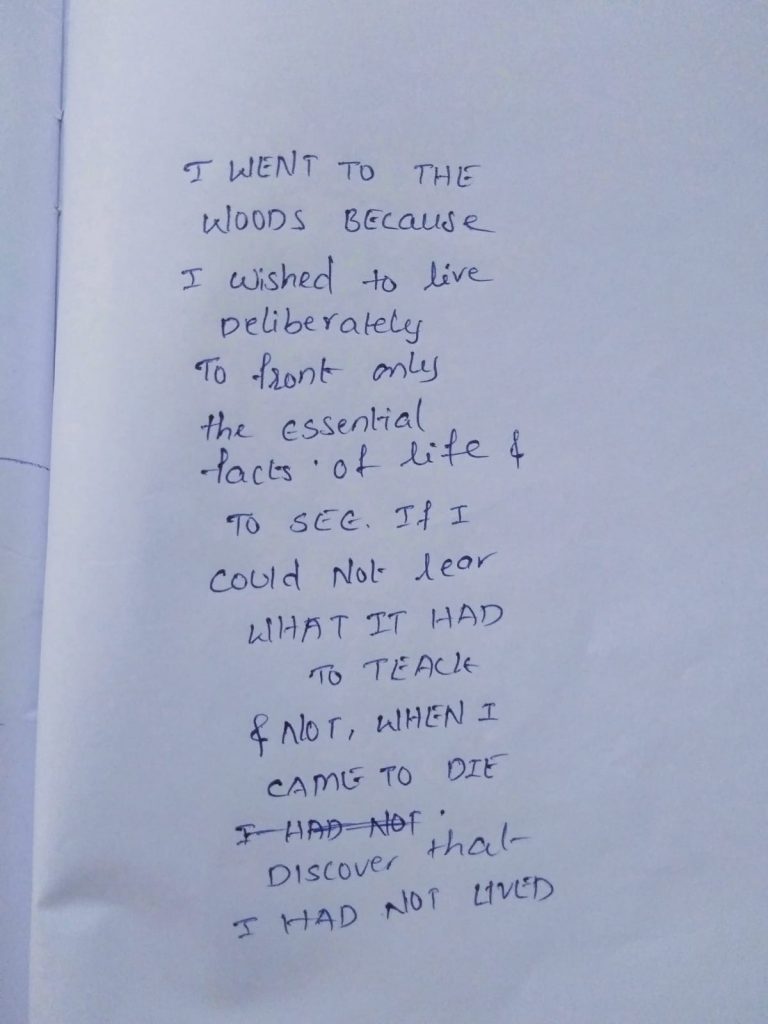 I WENT TO THE
WOODS BECause
I wished to live
Deliberately
To front only
the essential
facts of life &
TO SEE. If I
could Not lear
WHAT IT HAD
TO TEACH
& NOT, WHEN I
CAME TO DIE
I HAD NOT
DISCOVER that
I HAD NOT LIVED